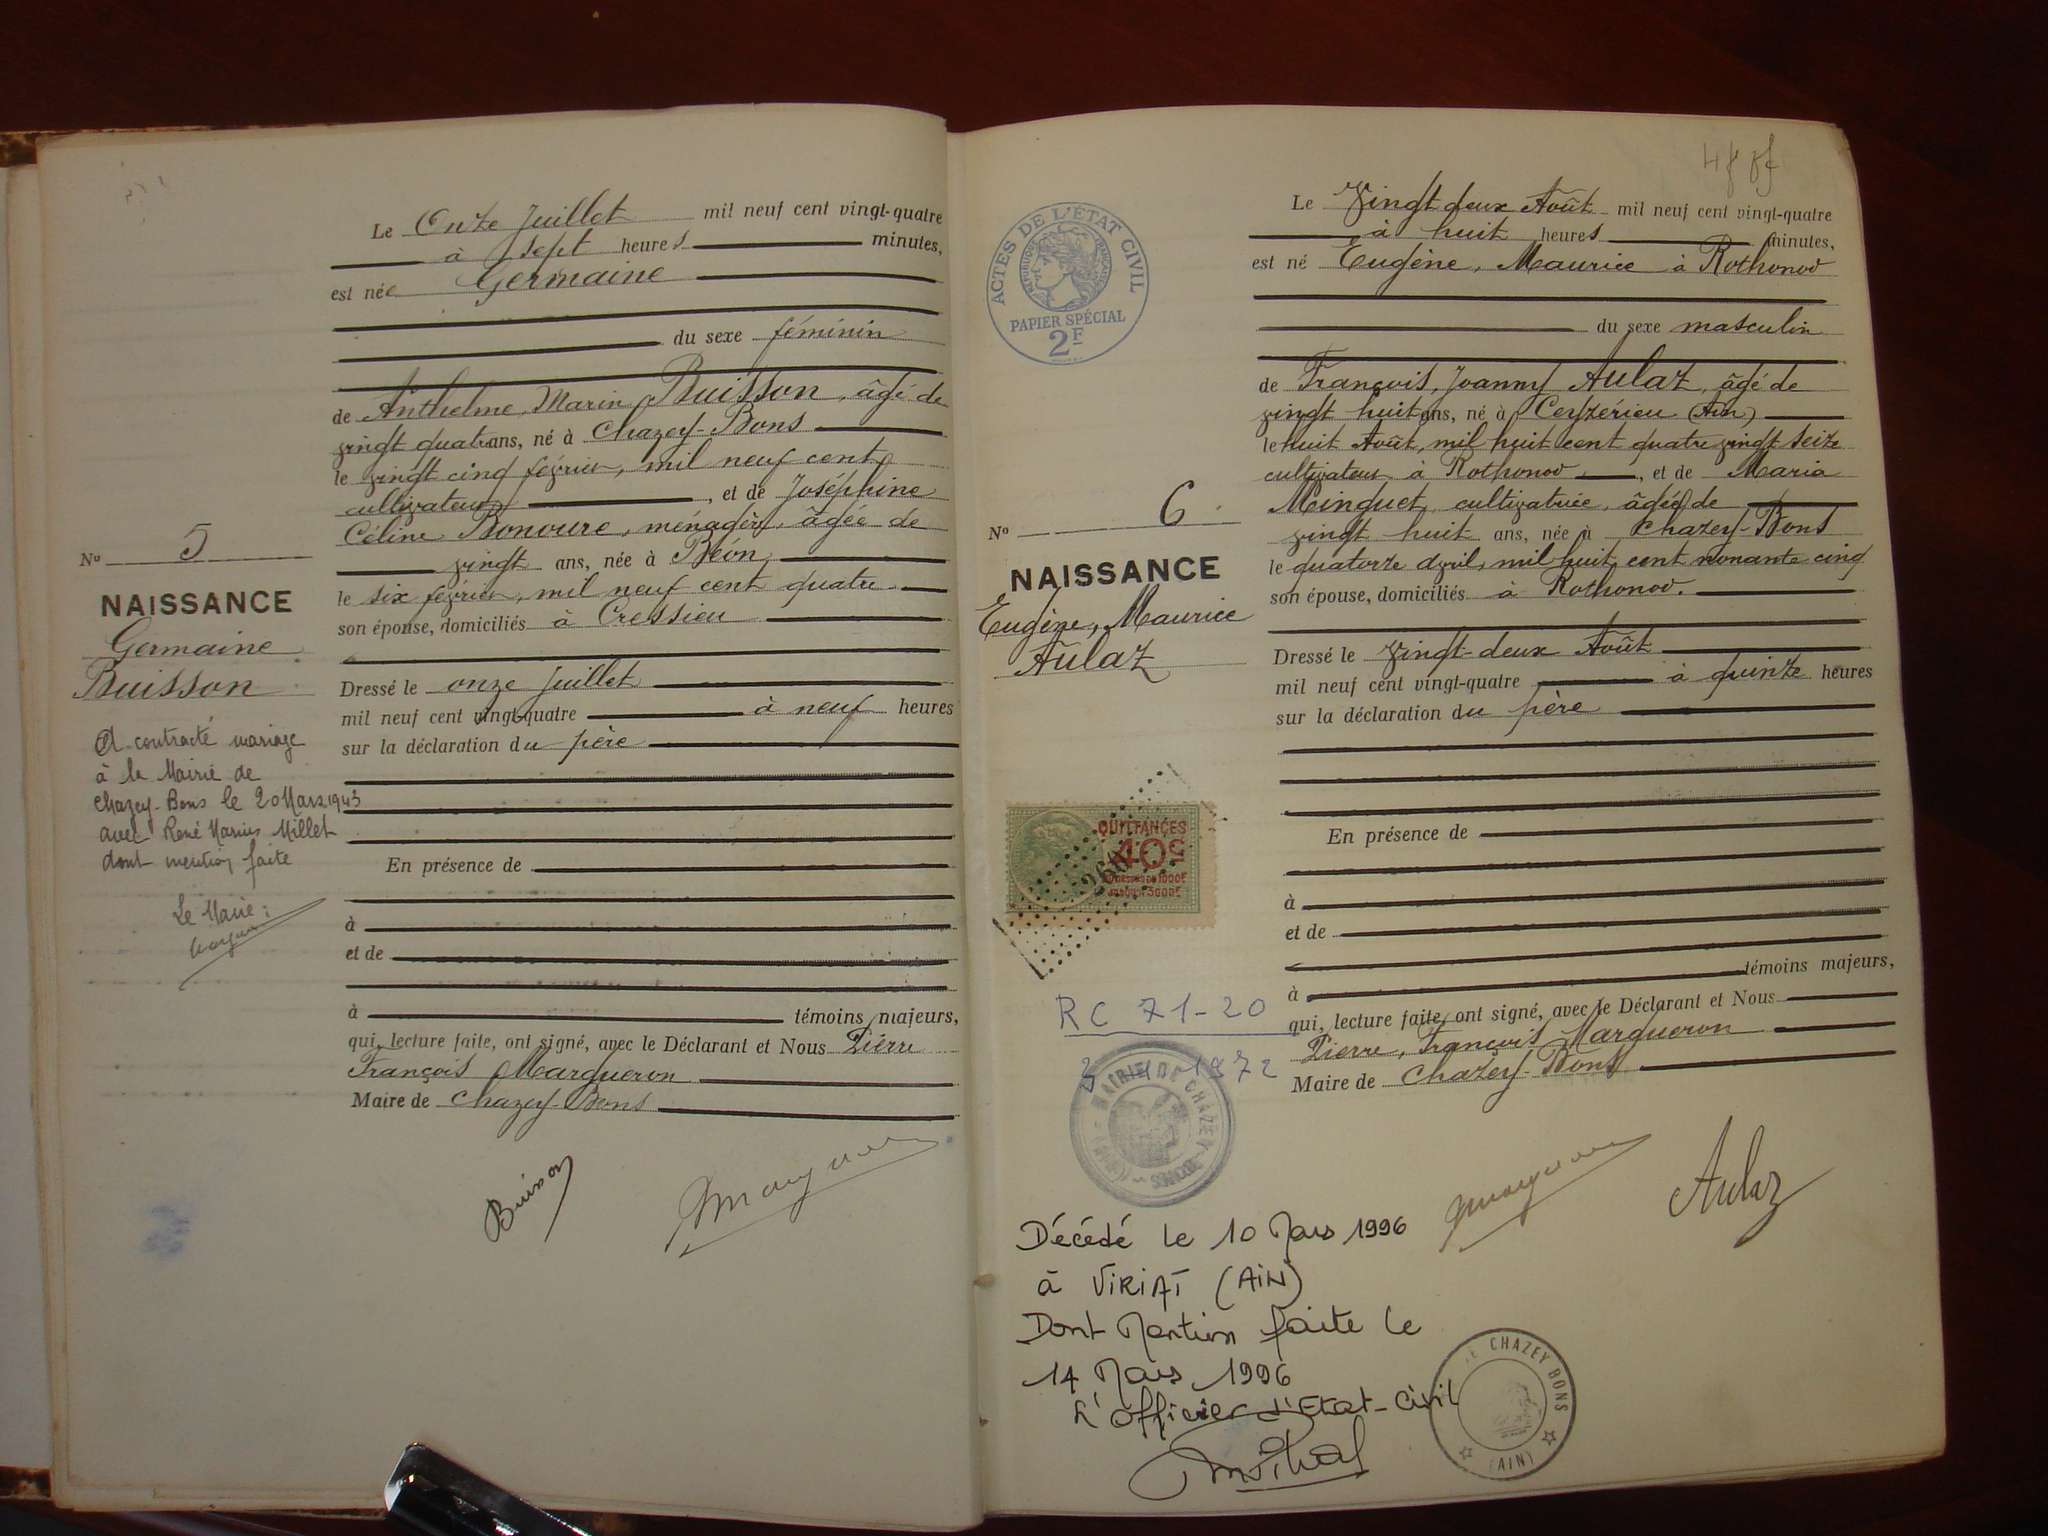 Le Onze Juillet mil neuf cent vingt-quatre
à sept heures minutes,
est née Germaine
du sexe féminin
de Anthelme, Marin Buisson, âgé de
vingt quatre ans, né à Chazey-Bons
le vingt cinq février, mil neuf cent
cultivateur, et de Joséphine
Céline Bonoure, ménagère, âgée de
vingt ans, née à Béon,
le six février, mil neuf cent quatre
son épouse, domiciliés à Cressieu
Dressé le onze juillet
mil neuf cent vingt-quatre à neuf heures
sur la déclaration du père
En présence de
à
et de
à témoins majeurs,
qui, lecture faite, ont signé, avec le Déclarant et Nous Pierre
François Margueron
Maire de Chazey-Bons
Buisson
No 5
NAISSANCE
Germaine
Buisson
A contracté mariage
à la Mairie de
Chazey-Bons le 20 Mars 1943
avec René Marius Millet
dont mention faite
Le Maire :
4 f
Le Vingt deux Août mil neuf cent vingt-quatre
à huit heures minutes,
est né Eugène, Maurice à Rothonod
du sexe masculin
de François, Joanny Aulaz, âgé de
vingt huit ans, né à Ceyzérieu (Ain)
le huit Août, mil huit cent quatre vingt seize
cultivateur à Rothonod, et de Maria
Minguet, cultivatrice, âgée de
vingt huit ans, née à Chazey-Bons
le quatorze avril, mil huit cent nonante cinq
son épouse, domiciliés à Rothonod.
Dressé le vingt-deux Août
mil neuf cent vingt-quatre à quinze heures
sur la déclaration du père
En présence de
à
et de
témoins majeurs,
à
qui, lecture faite, ont signé, avec le Déclarant et Nous
Pierre, François Margueron
Maire de Chazey-Bons
Aulaz
ACTES DE L'ÉTAT CIVIL
RÉPUBLIQUE FRANÇAISE
PAPIER SPÉCIAL
2F
No 6
NAISSANCE
Eugène, Maurice
Aulaz
QUITTANCES
40c
JUSQU'A 3000F
RC 71-20
3 1972
MAIRIE DE CHAZEY-BONS (AIN)
Décédé le 10 Mars 1996
à VIRIAT (AIN)
Dont Mention faite le
14 Mars 1996
L'officier d'Etat-Civil
DE CHAZEY BONS
(AIN)